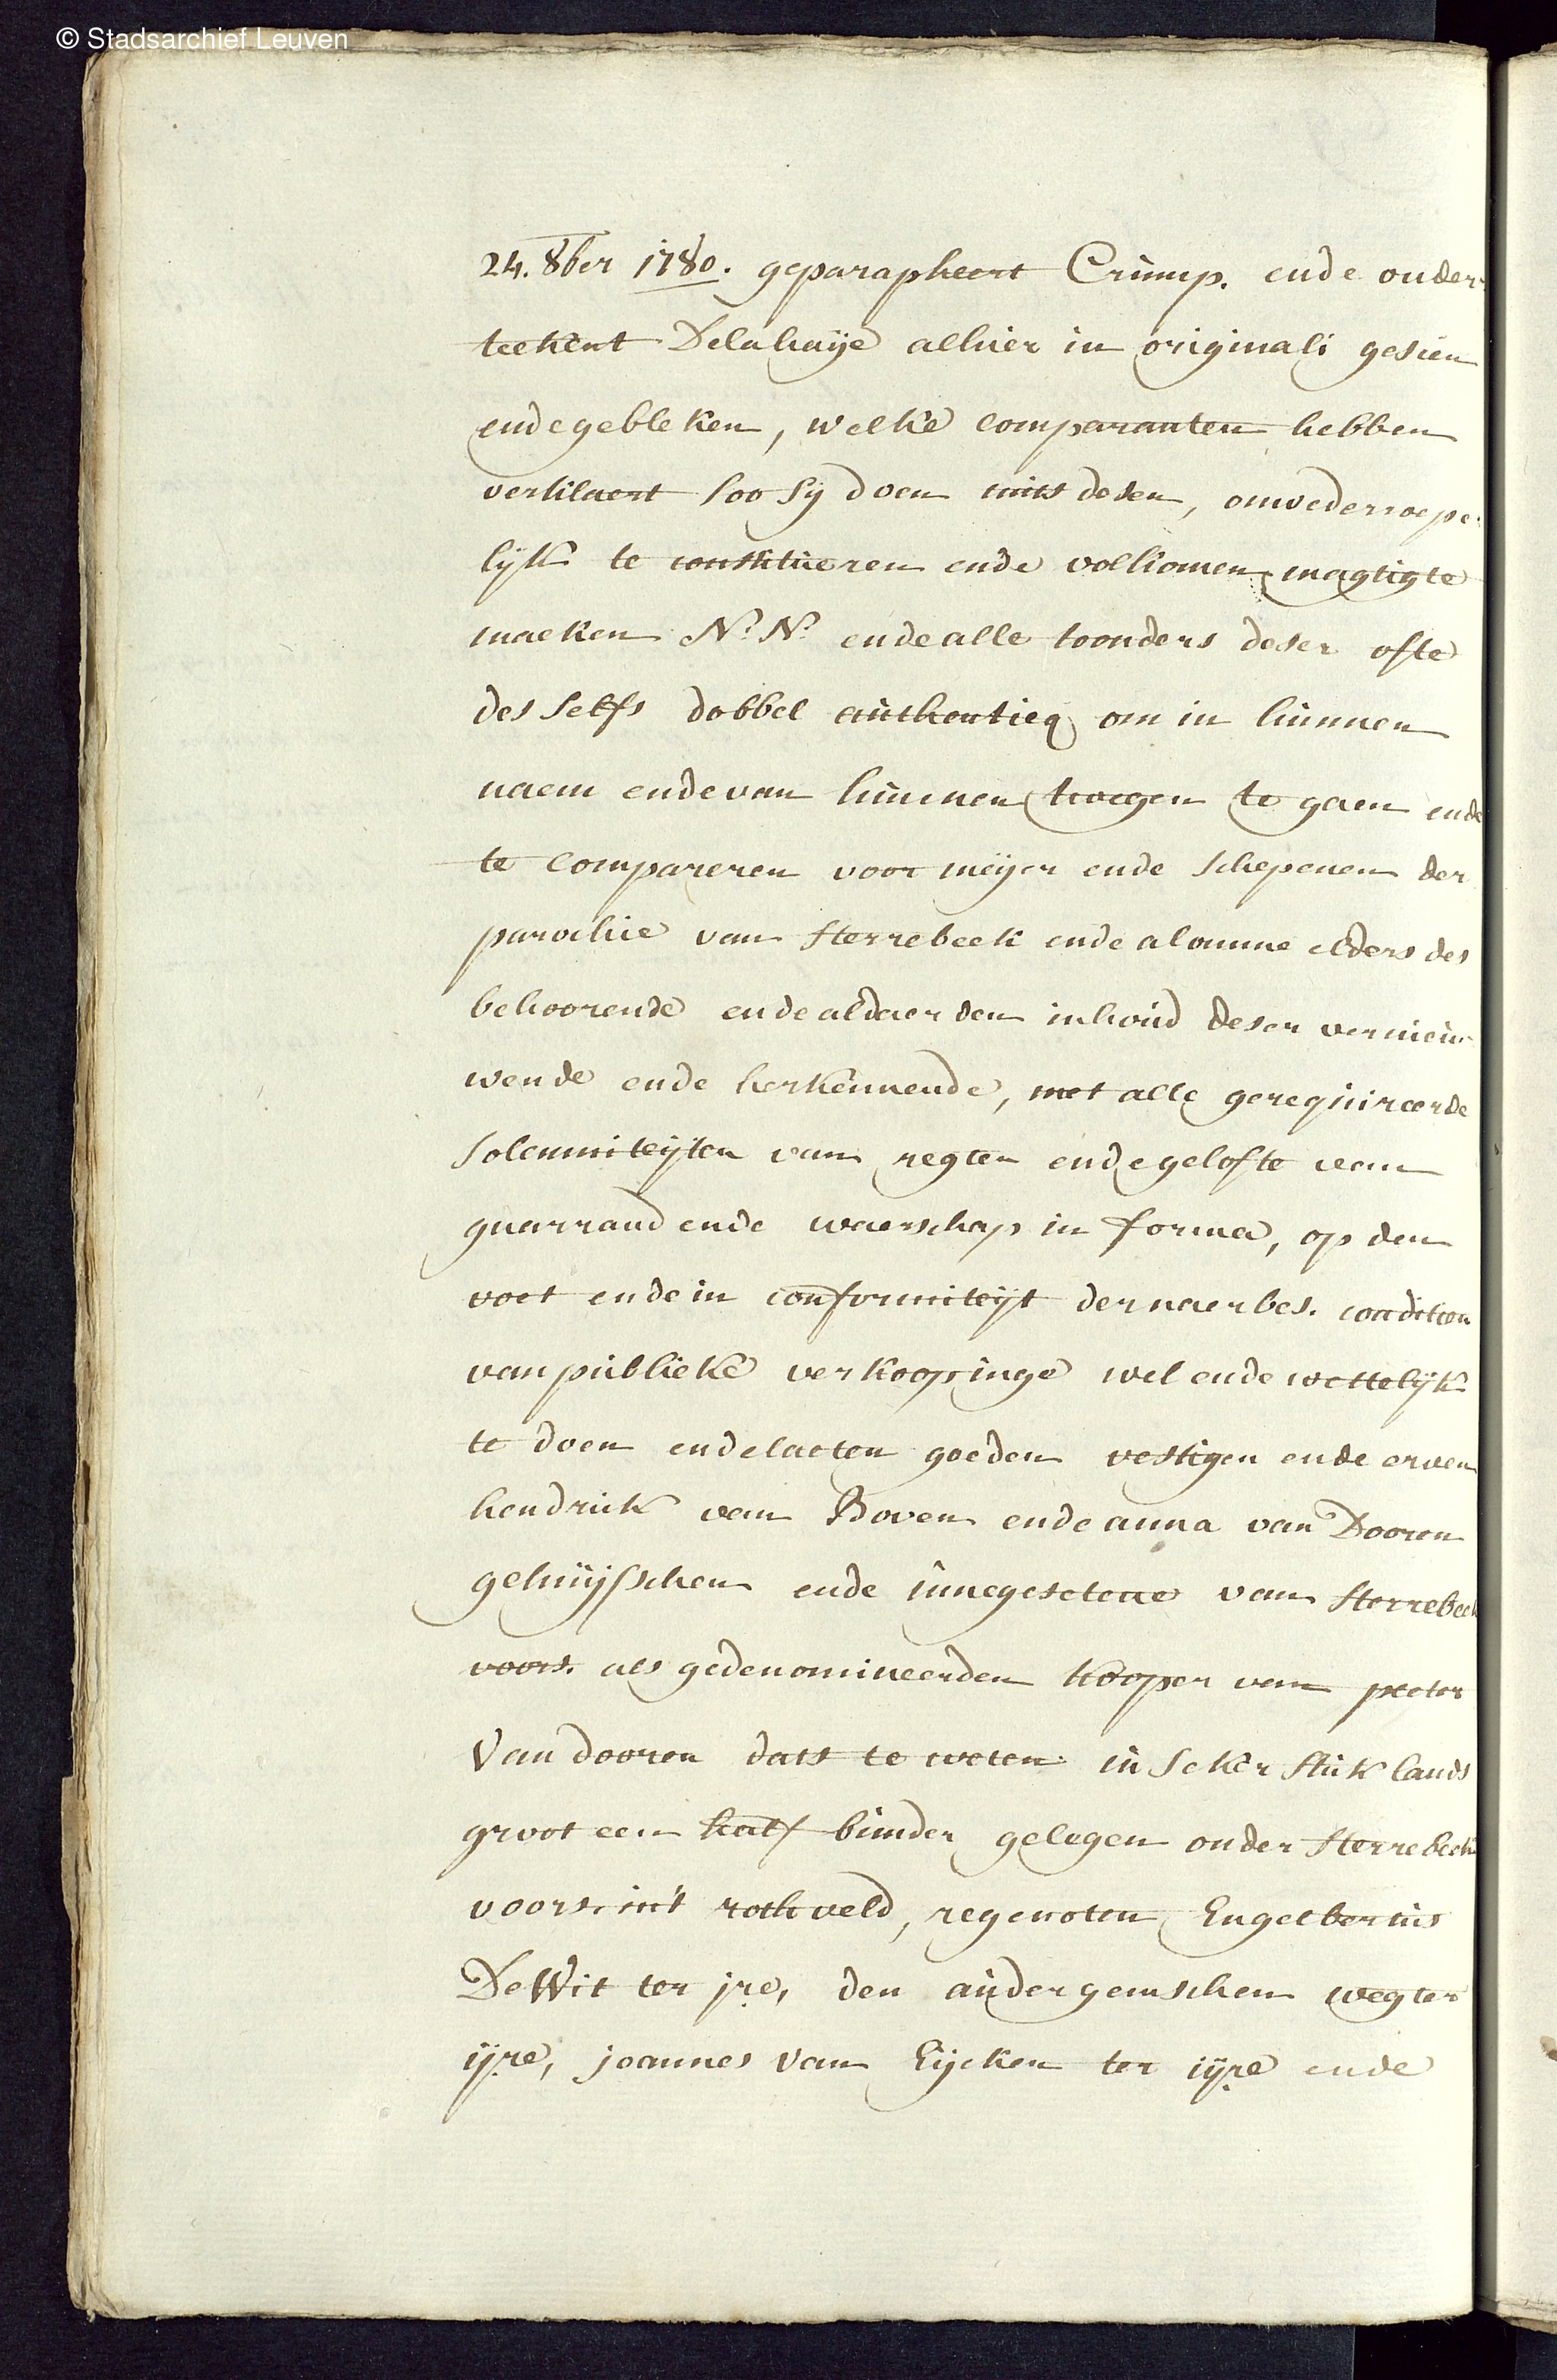 © Stadsarchief Leuven
24. 8ber 1780. geparapheert Crump. ende onder-
teekent Delahaÿe alhier in originali gesien
ende gebleken, welke comparanten hebben
verklaert soo sy doen mits desen, onwederroepe-
lijk te constitueren ende volkomen magtig te
maeken N: N: ende alle toonders deser ofte
des selfs dobbel authentieq om in hunnen
naem ende van hunnen twegen te gaen ende
te compareren voor meijer ende schepenen der
parochie van Sterrebeek ende alomme elders des
behoorende ende aldaer den inhoud deser vernieu-
wende ende herkennende, met alle gerequireerde
solemniteijten van regten ende gelofte van
guarrand ende waerschap in forma, op den
voet ende in conformiteijt der naerbes. condition
van publieke verkoopinge wel ende wettelijk
te doen ende laeten goeden vestigen ende erven
hendrick van Boven ende anna van Dooren
gehuijsschen ende innegesetene van Sterrebeek
voors. als gedenomineerden kooper van peeter
Van dooren dats te weten in seker stuk lands
groot een half bunder gelegen onder Sterrebeek
voors. in't rothveld, regenoten Engelbertus
De Wit ter jre, den audergemschen weg ter
ijre, joannes Van Eijcken ter ijre ende